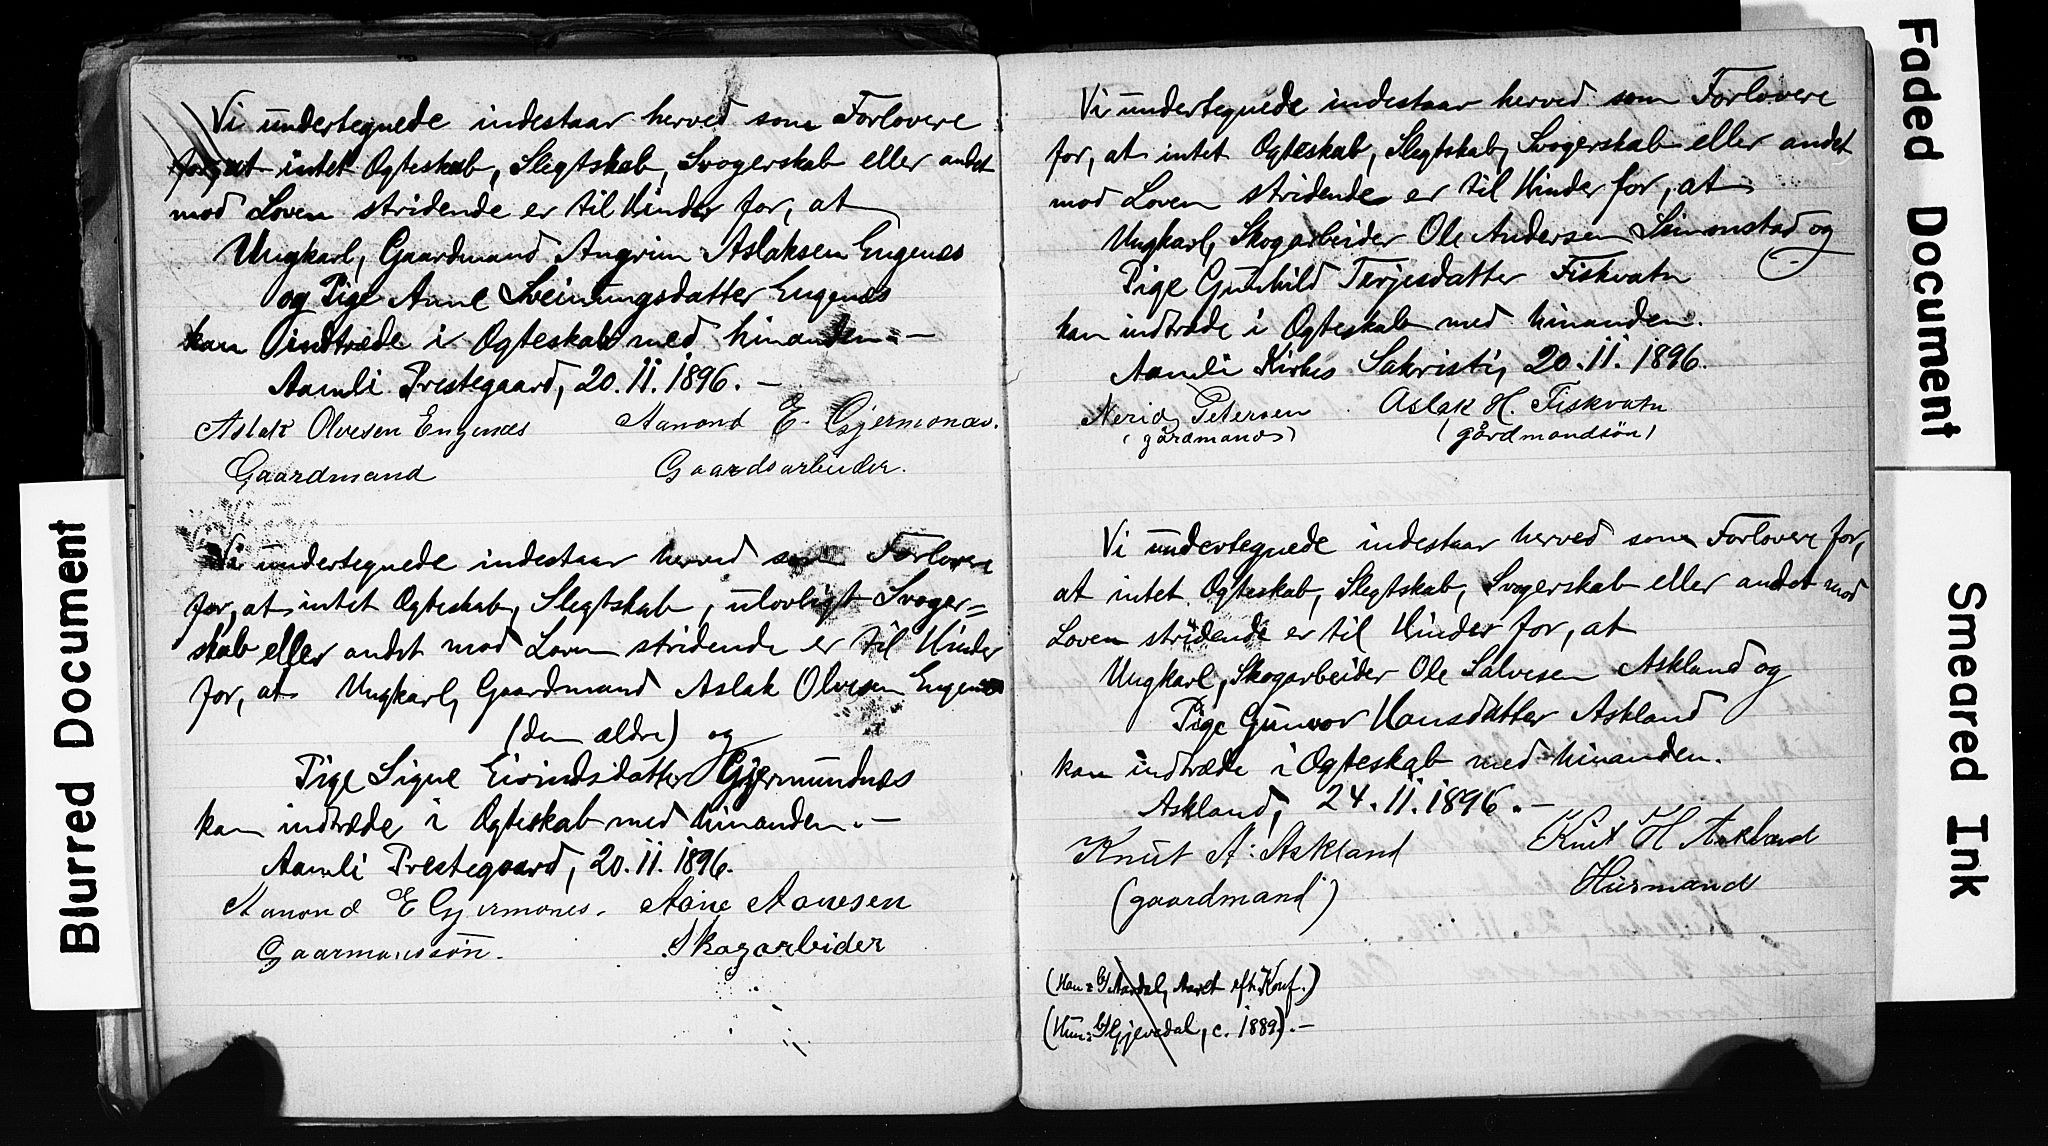 Vi undertegnede indestaar herved som Forlovere
for, at intet Ægteskab, Slegtskab, Svogerskab eller andet
mod Loven stridende er til Hinder for, at
Ungkarl, Gaardmand Angrim Aslaksen Engenæs
og Pige Anne Sveinungsdatter Engenæs
kan indtræde i Ægteskab med hinanden. —
Aamli Prestegaard, 20.11.1896. —
Aslak Olvesen Engenæs Aanond E. Gjermonæs.
Gaardmand Gaardsarbeider.
Vi undertegnede indestaar herved som Forlovere
for, at intet Ægteskab, Slegtskab, ulovligt Svoger=
skab eller andet mod Loven stridende er til Hinder
for, at Ungkarl, Gaardmand Aslak Olvesen Engenæs
(den ældre) og
Pige Signe Eivindsdatter Gjermundnæs
kan indtræde i Ægteskab med hinanden. —
Aamli Prestegaard, 20.11.1896.
Aanond E Gjermones. Aane Aanesen
Gaarmanssön. Skogarbeider
Vi undertegnede indestaar herved som Forlovere
for, at intet Ægteskab, Slegtskab, Svogerskab eller andet
mod Loven stridende er til Hinder for, at
Ungkarl, Skogarbeider Ole Andersen Simonstad og
Pige Gunhild Terjesdatter Fiskvatn
kan indtræde i Ægteskab med hinanden.
Aamli Kirkes Sakristi, 20.11.1896.
Nerid Petersen Aslak H. Fiskvatn
(gårdmand) (gårdmandsön)
Vi undertegnede indestaar herved som Forlovere for,
at intet Ægteskab, Slegtskab, Svogerskab eller andet mod
Loven stridende er til Hinder for, at
Ungkarl, Skogarbeider Ole Salvesen Askland og
Pige Gunvor Hansdatter Askland
kan indtræde i Ægteskab med hinanden.
Askland, 24.11.1896. —
Knut A: Askland Knut H Askland
(gaardmand) Husmand
(Han: Aardal, Aaret eft. Konf.)
(Hun: Gjevedal, c. 1889). —
Blurred Document
Faded Document
Smeared Ink